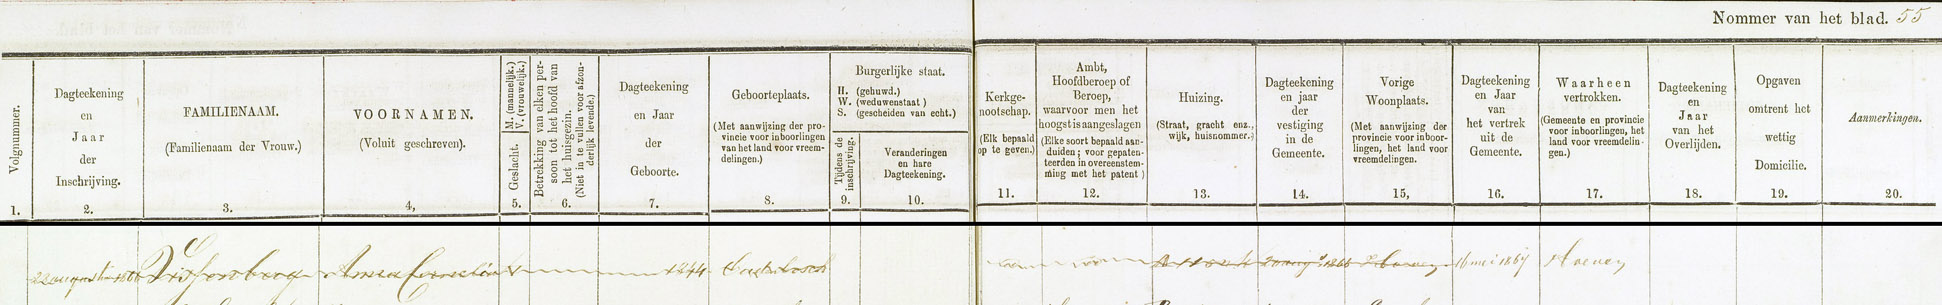 Nommer van het blad. 55
Volgnummer.
1.
Dagteekening
en
Jaar
der
Inschrijving.
2.
FAMILIENAAM.
(Familienaam der Vrouw.)
3.
VOORNAMEN.
(Voluit geschreven).
4,
Geslacht. M. (mannelijk.)
V. (vrouwelijk.)
5.
Betrekking van elken per-
soon tot het hoofd van
het huisgezin.
(Niet in te vullen voor afzon-
derlijk levende.)
6.
Dagteekening
en Jaar
der
Geboorte.
7.
Geboorteplaats.
(Met aanwijzing der pro-
vincie voor inboorlingen
van het land voor vreem-
delingen.)
8.
Burgerlijke staat.
H. (gehuwd.)
W. (weduwenstaat)
S. (gescheiden van echt.)
Tijdens de
inschrijving.
9.
Veranderingen
en hare
Dagteekening.
10.
Kerkge-
nootschap.
(Elk bepaald
op te geven.)
11.
Ambt,
Hoofdberoep of
Beroep,
waarvoor men het
hoogst is aangeslagen
(Elke soort bepaald aan-
duiden; voor gepaten-
teerden in overeenstem-
ming met het patent)
12.
Huizing.
(Straat, gracht enz.,
wijk, huisnommer.)
13.
Dagteekening
en jaar
der
vestiging
in de
Gemeente.
14.
Vorige
Woonplaats.
(Met aanwijzing der
provincie voor inboor-
lingen, het land voor
vreemdelingen.
15,
Dagteekening
en Jaar
van
het vertrek
uit de
Gemeente.
16.
Waarheen
vertrokken.
(Gemeente en provincie
voor inboorlingen, het
land voor vreemdelin-
gen.)
17.
Dagteekening
en
Jaar
van het
Overlijden.
18.
Opgaven
omtrent het
wettig
Domicilie.
19.
Aanmerkingen.
20.
22 augustus 1866 Anna Cornelia V 1844 16 mei 1867